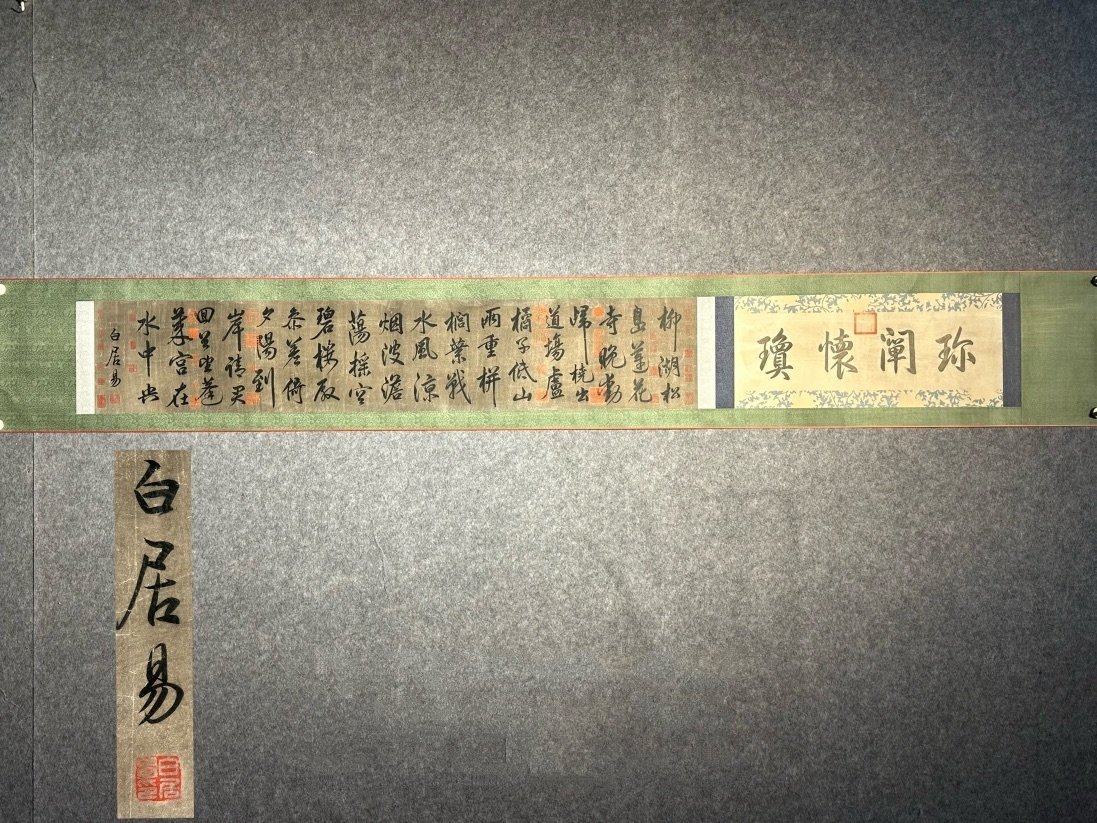 珎闡懷瓊
柳湖松
島蓮花
寺晚動
歸橈出
道場盧
橘子低山
雨重栟
櫚葉戰
水風涼
烟波澹
蕩搖空
碧樓殿
叅差倚
夕陽到
岸請君
回首望蓬
萊宮在
水中央
白居易
白居易